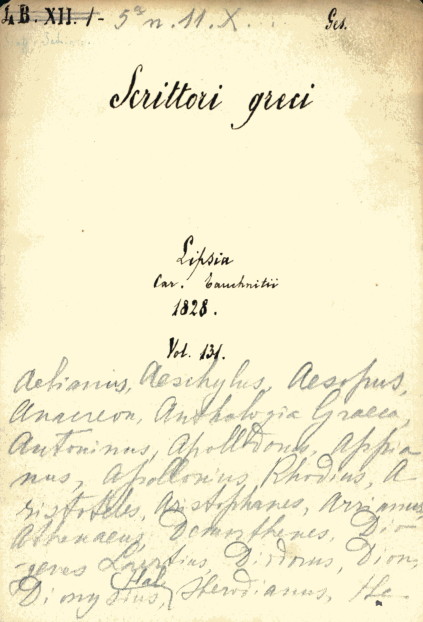 B. XII. 1- 5ª n. 11. X. Ges.
Scrittori greci
Lipsia
Car. Tauchnitii
1828.
Vol. 131.
Aelianus, Aeschylus, Aesopus,
Anacreon, Anthologia Graeca,
Antoninus, Apollodorus, Appia
nus, Apollonius, Rhodius, A
ristoteles, Aristophanes, Arrianus,
Athenaeus, Demosthenes, Dio-
genes Laertius, Diodorus, Dion,
Dionysius, Hal. Herodianus, He-